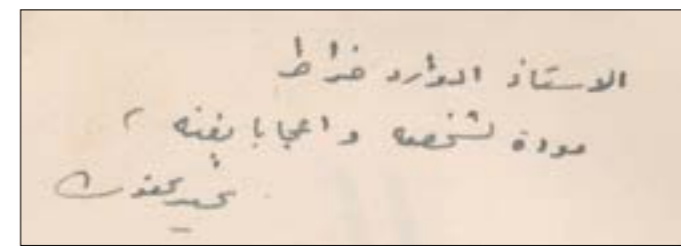 الاستاذ ادوارد خراط
مودة لشخصه واعجابا بفنه ،
نجيب محفوظ